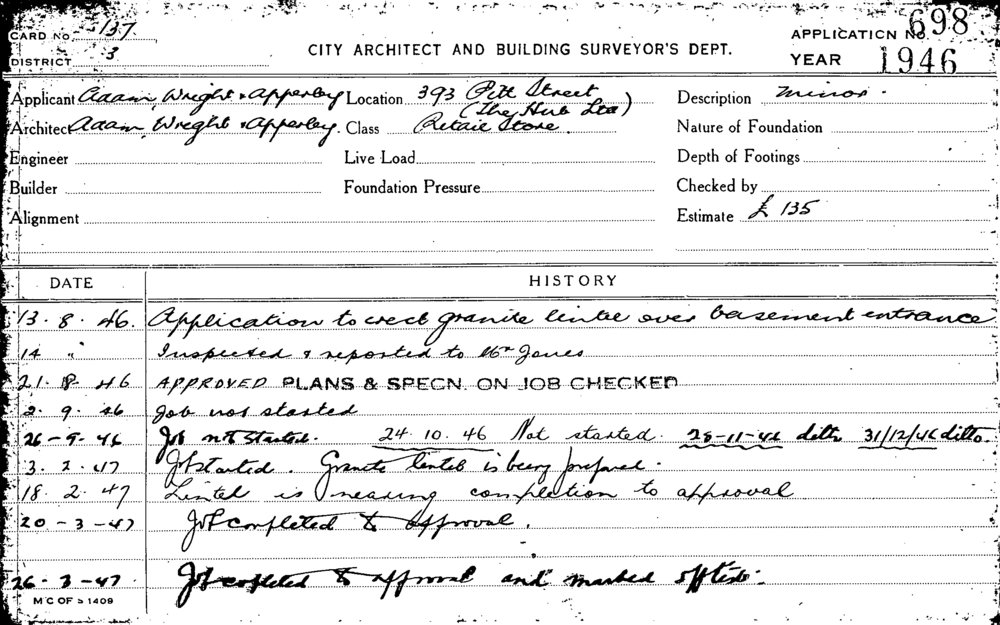 CARD NO. 137
DISTRICT 3
CITY ARCHITECT AND BUILDING SURVEYOR'S DEPT.
APPLICATION No. 698
YEAR 1946
Applicant Adam, Wright & Apperley Location 393 Pitt Street Description minor.
(The Hub Ltd)
Architect Adam, Wright & Apperley. Class Retail Store. Nature of Foundation
Engineer Live Load Depth of Footings
Builder Foundation Pressure Checked by
Alignment Estimate £ 135
DATE HISTORY
13. 8. 46. Application to erect granite lintel over basement entrance
14 " Inspected & reported to Mr Jones
21. 8. 46 APPROVED PLANS & SPECN. ON JOB CHECKED
2. 9. 46 Job not started
26-9-46 Job not started. 24.10.46 Not started. 28-11-46 ditto 31/12/46 ditto.
3. 2. 47 Job started. Granite lintel is being prepared.
18. 2. 47 Lintel is nearing completion to approval
20-3-47 Job completed to approval.
26-3-47. Job completed to approval and marked off
M C OF S 1409